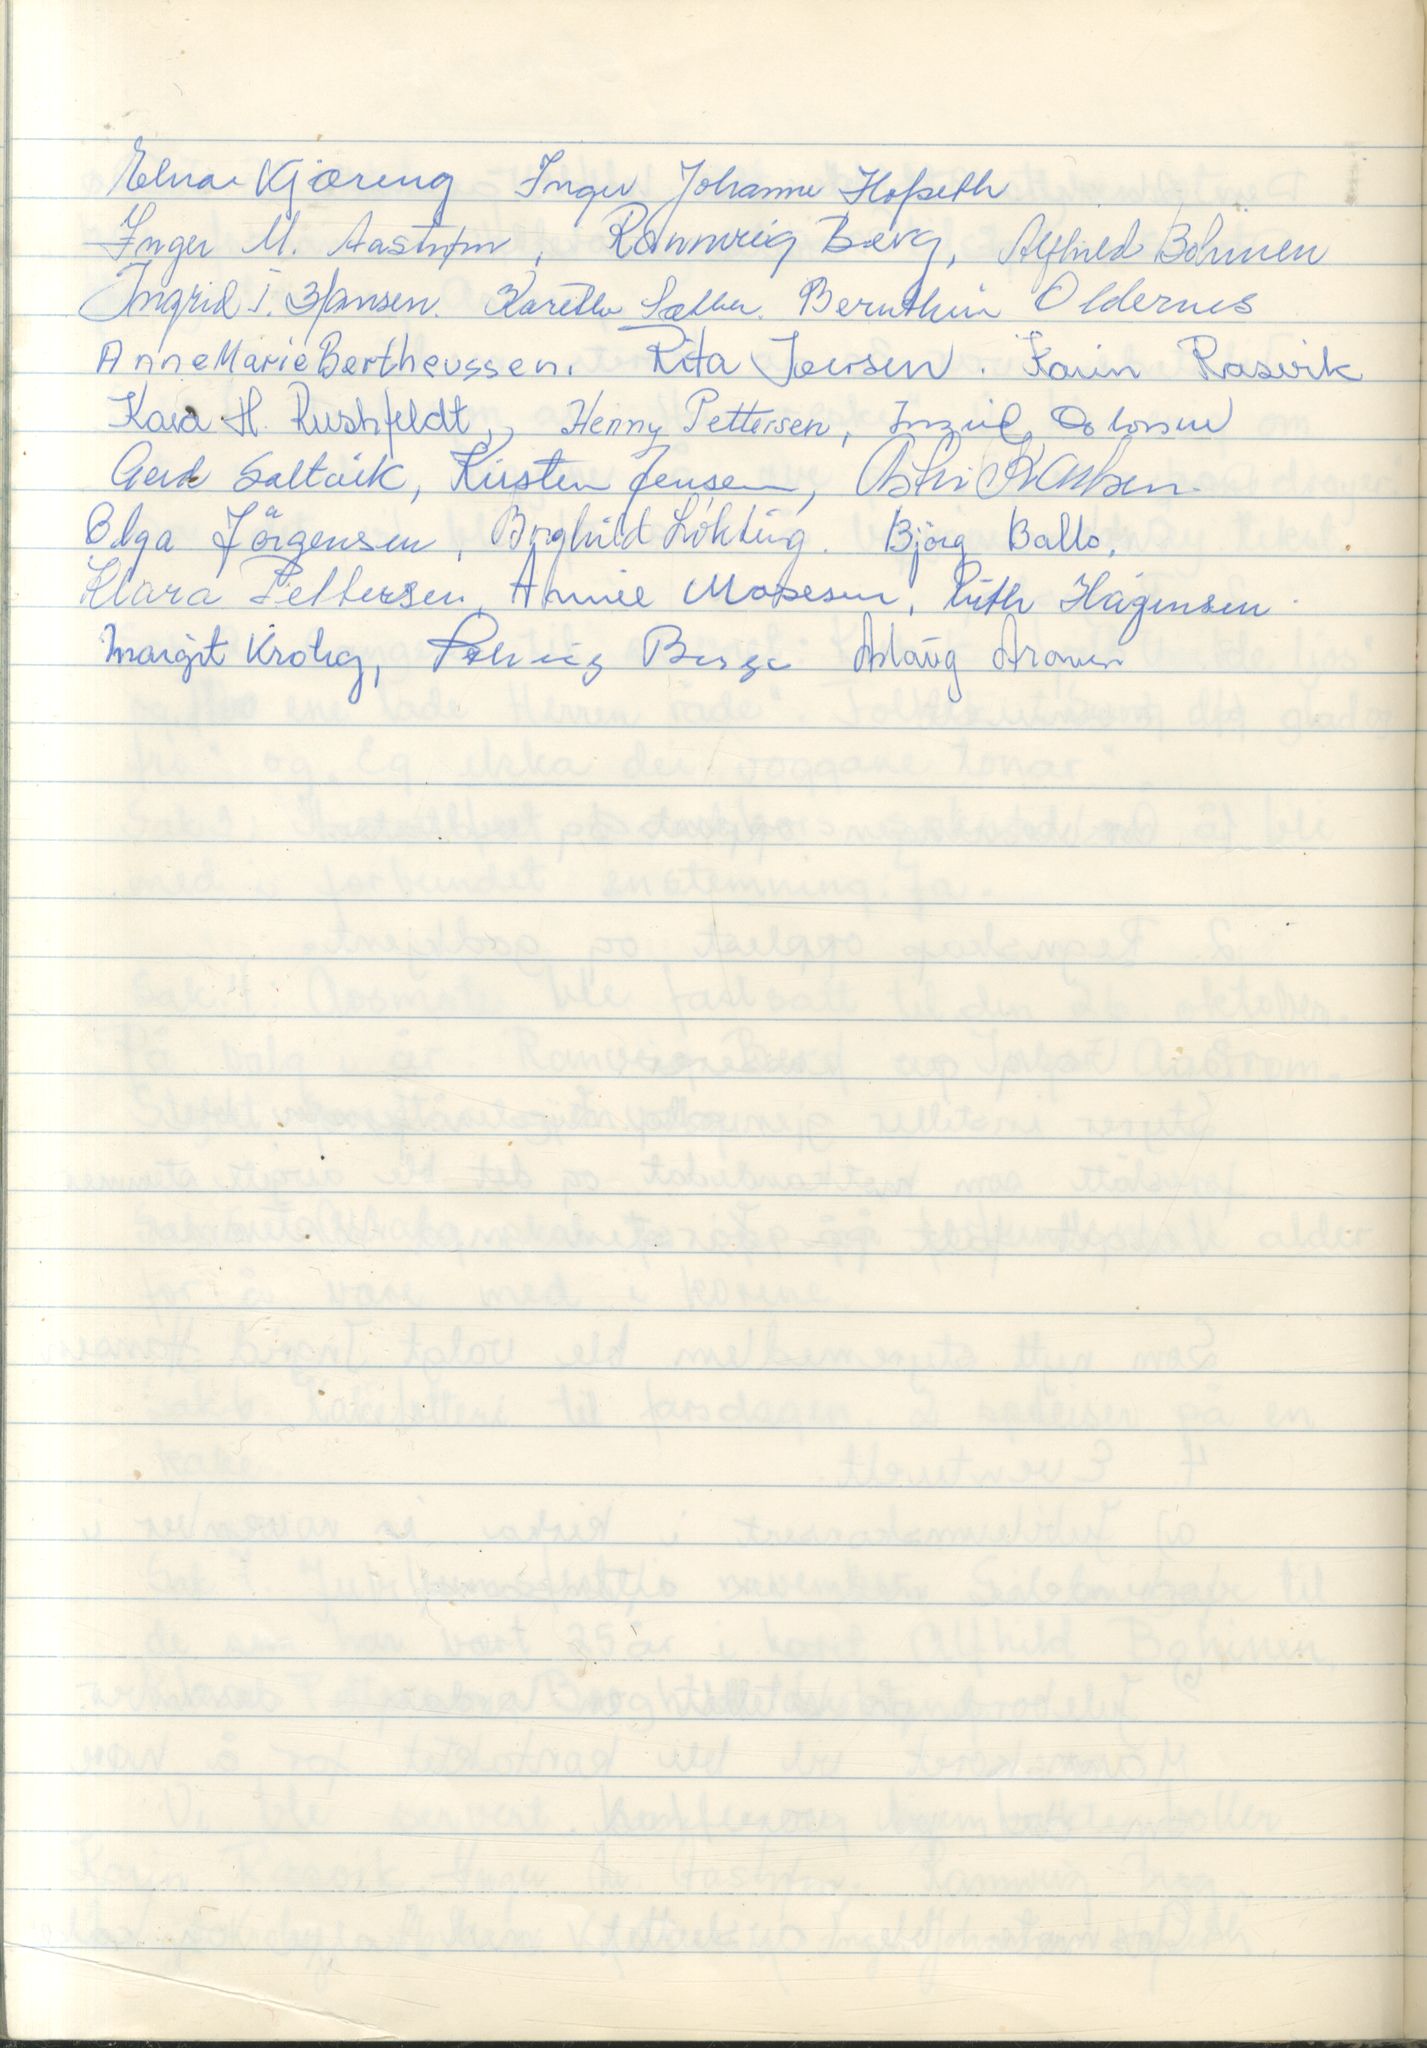 Elna Kjæreng Inger Johanne Hofseth
Inger M. Aastrøm, Rannveig Berg, Alfhild Böhmen
Ingrid J. Hansen. Karethe Sæther. Bernthin Oldernes
Anne Marie Bertheussen. Rita Iversen. Karin Rasvik
Kara H. Rushfeldt, Henny Pettersen,
Gerd Saltvik, Kirsten Jensen,
Olga Jörgensen, Borghild Løkting. Björg Ballo.
Klara Pettersen, Annie Mosesen, Ruth Hågensen.
Margit Krohg, Aslaug Aronsen